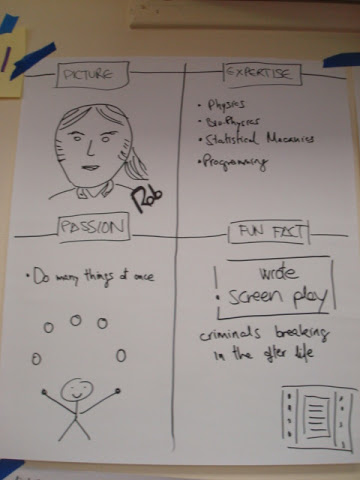 PICTURE
Rob
EXPERTISE
• Physics
• Bio-Physics
• Statistical Mecanics
• Programming
PASSION
• Do many things at once
FUN FACT
wrote
• screen play
criminals breaking
in the after life